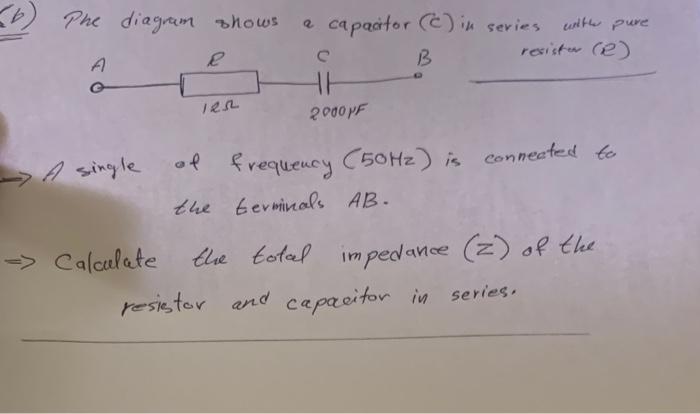 (b) The diagram shows a capacitor (C) in series with pure
resistor (R)
A R C B
12Ω 2000pF
→ A single of frequency (50Hz) is connected to
the terminals AB.
⇒ Calculate the total impedance (Z) of the
resistor and capacitor in series.